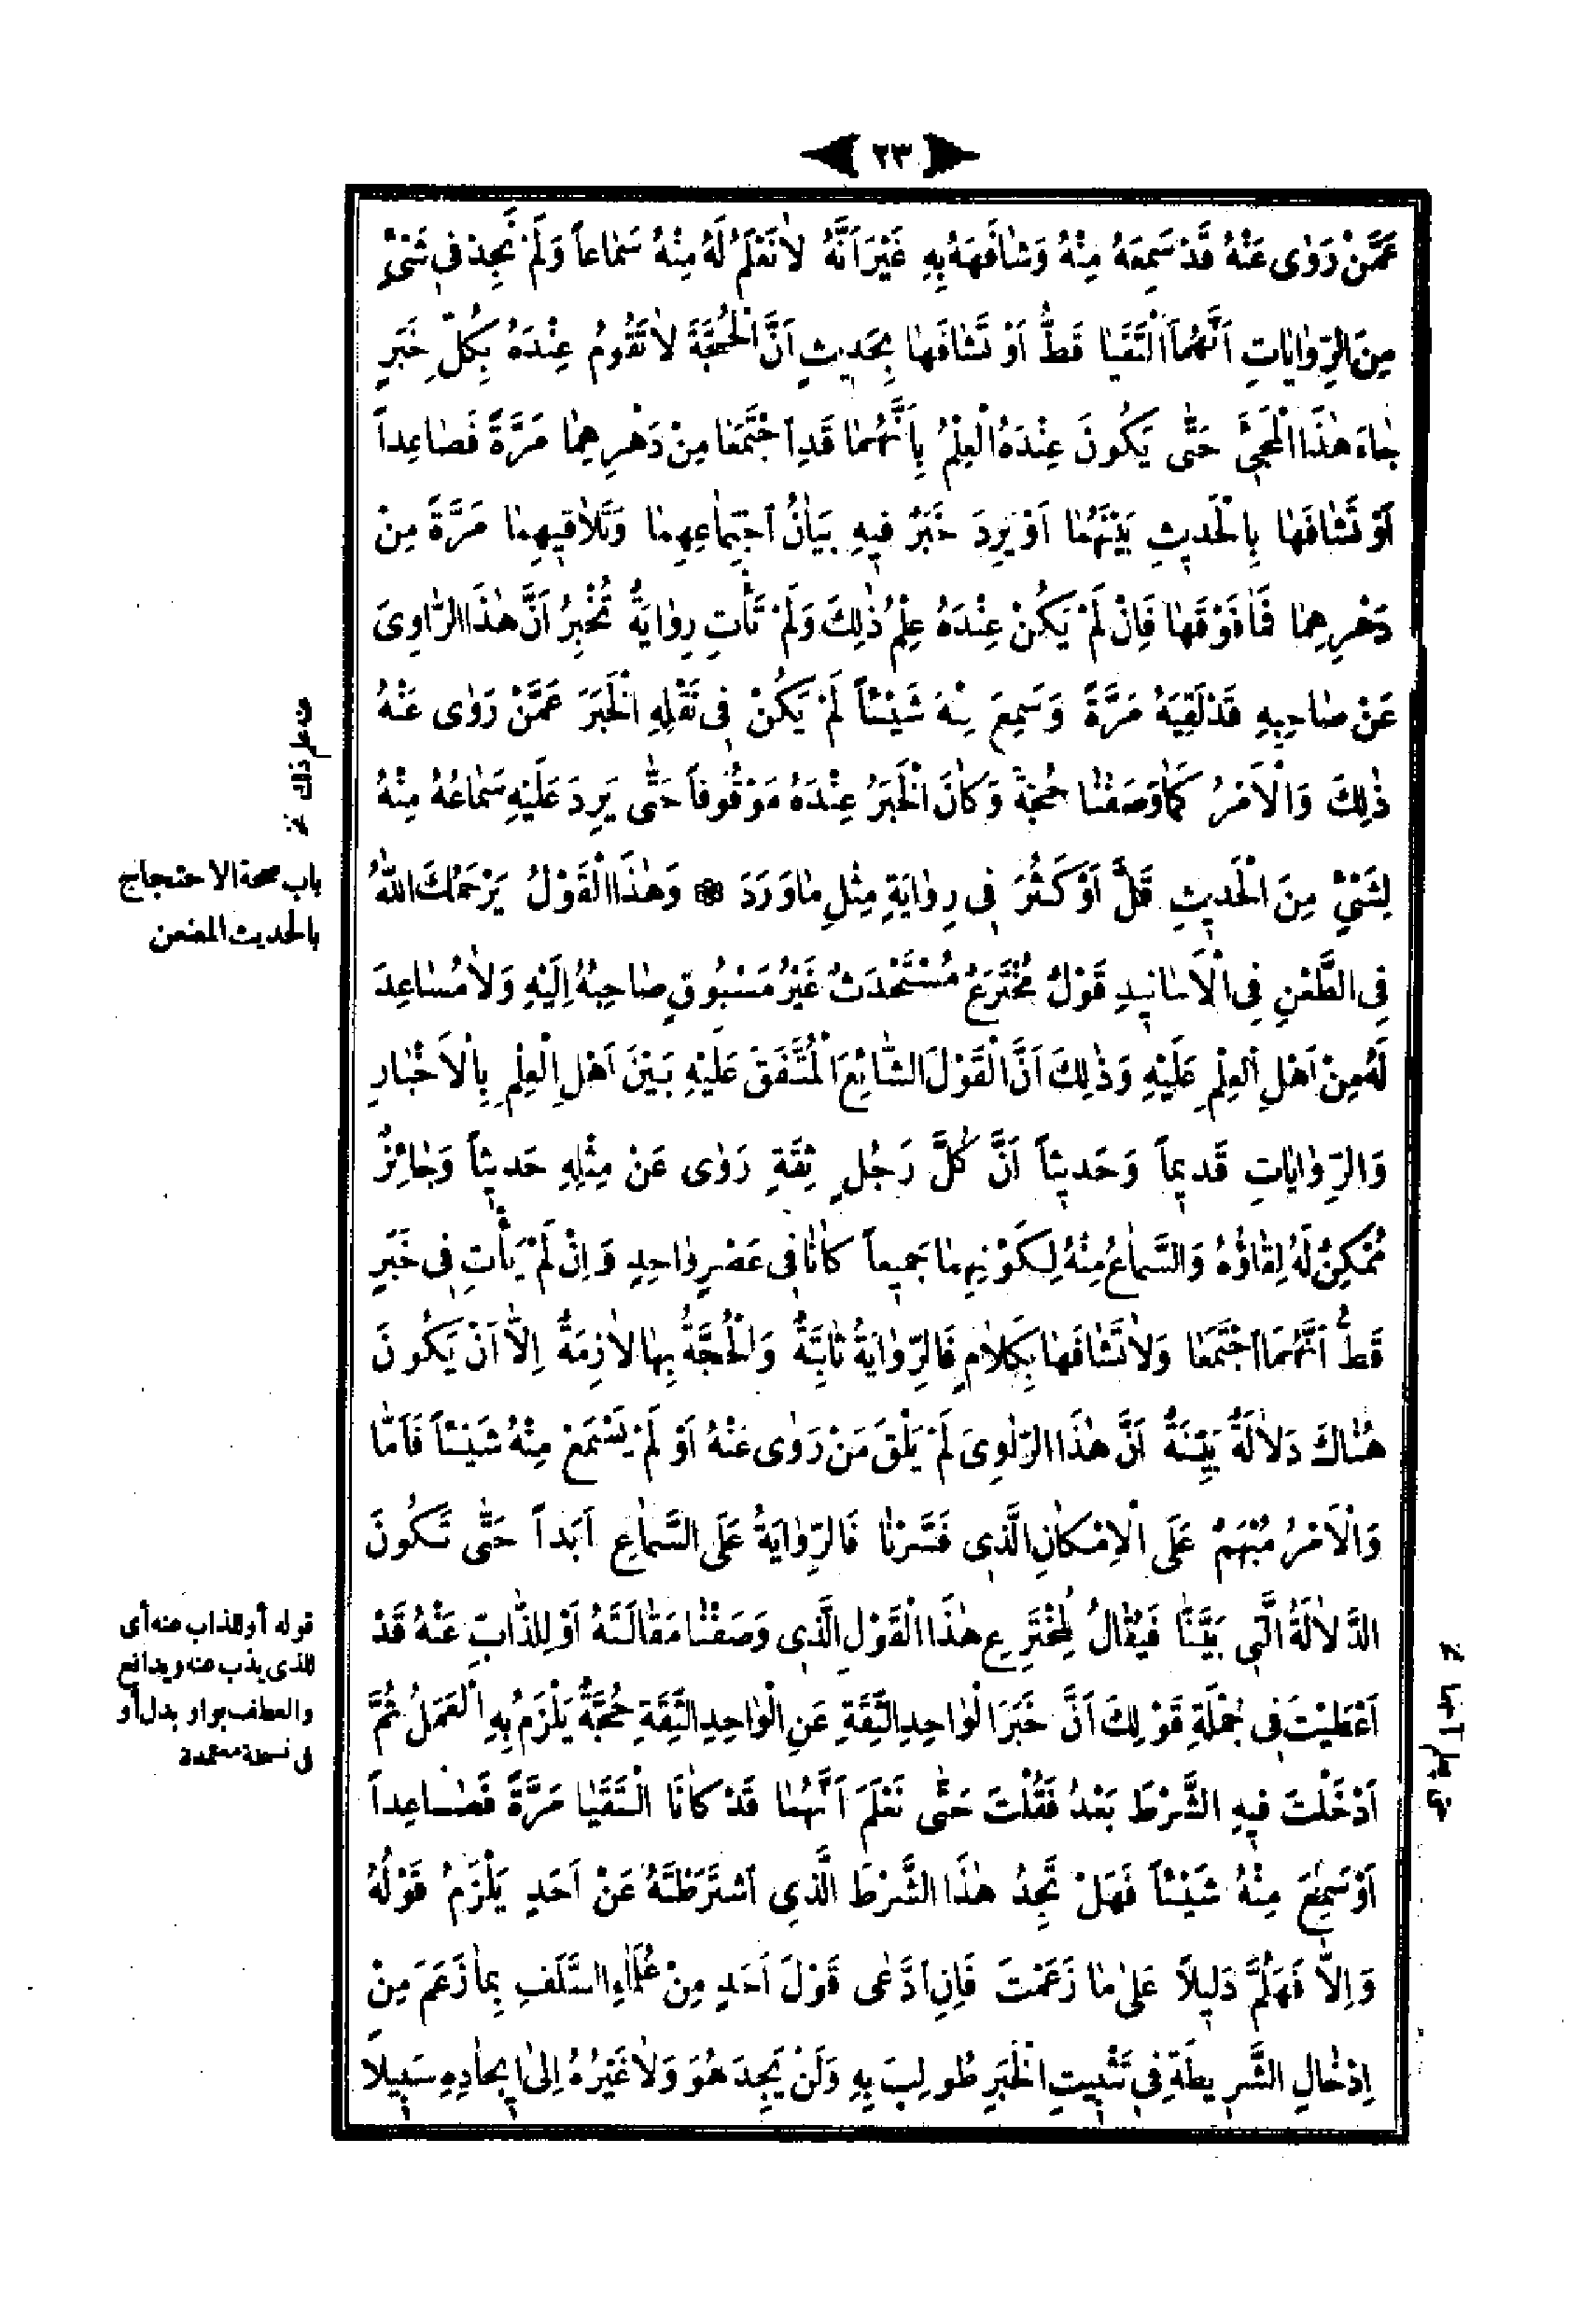 ٢٣
عَمَّنْ رَوٰى عَنْهُ قَدْ سَمِعَهُ مِنْهُ وَشَافَهَهُ بِهِ غَيْرَ اَنَّهُ لَا نَعْلَمُ لَهُ مِنْهُ سَمَاعاً وَلَمْ نَجِدْ فِى شَىْءٍ
مِنَ الرِّوَايَاتِ اَنَّهُمَا الْتَقَيَا قَطُّ اَوْ تَشَافَهَا بِحَدِيثٍ اَنَّ الْحُجَّةَ لَا تَقُومُ عِنْدَهُ بِكُلِّ خَبَرٍ
جَاءَ هٰذَا الْمَجِىءَ حَتّٰى يَكُونَ عِنْدَهُ الْعِلْمُ بِاَنَّهُمَا قَدِ اجْتَمَعَا مِنْ دَهْرِهِمَا مَرَّةً فَصَاعِداً
اَوْ تَشَافَهَا بِالْحَدِيثِ بَيْنَهُمَا اَوْ يَرِدَ خَبَرٌ فِيهِ بَيَانُ اجْتِمَاعِهِمَا وَتَلَاقِيهِمَا مَرَّةً مِنْ
دَهْرِهِمَا فَمَا فَوْقَهَا فَاِنْ لَمْ يَكُنْ عِنْدَهُ عِلْمُ ذٰلِكَ وَلَمْ تَأْتِ رِوَايَةٌ تُخْبِرُ اَنَّ هٰذَا الرَّاوِىَ
عَنْ صَاحِبِهِ قَدْ لَقِيَهُ مَرَّةً وَسَمِعَ مِنْهُ شَيْئاً لَمْ يَكُنْ فِى نَقْلِهِ الْخَبَرَ عَمَّنْ رَوٰى عَنْهُ
ذٰلِكَ وَالْاَمْرُ كَمَا وَصَفْنَا حُجَّةٌ وَكَانَ الْخَبَرُ عِنْدَهُ مَوْقُوفاً حَتّٰى يَرِدَ عَلَيْهِ سَمَاعُهُ مِنْهُ
لِشَىْءٍ مِنَ الْحَدِيثِ قَلَّ اَوْ كَثُرَ فِى رِوَايَةٍ مِثْلِ مَا وَرَدَ ۞ وَهٰذَا الْقَوْلُ يَرْحَمُكَ اللّٰهُ
فِى الطَّعْنِ فِى الْاَسَانِيدِ قَوْلٌ مُخْتَرَعٌ مُسْتَحْدَثٌ غَيْرُ مَسْبُوقٍ صَاحِبُهُ اِلَيْهِ وَلَا مُسَاعِدَ
لَهُ مِنْ اَهْلِ الْعِلْمِ عَلَيْهِ وَذٰلِكَ اَنَّ الْقَوْلَ الشَّائِعَ الْمُتَّفَقَ عَلَيْهِ بَيْنَ اَهْلِ الْعِلْمِ بِالْاَخْبَارِ
وَالرِّوَايَاتِ قَدِيماً وَحَدِيثاً اَنَّ كُلَّ رَجُلٍ ثِقَةٍ رَوٰى عَنْ مِثْلِهِ حَدِيثاً وَجَائِزٌ
مُمْكِنٌ لَهُ لِقَاؤُهُ وَالسَّمَاعُ مِنْهُ لِكَوْنِهِمَا جَمِيعاً كَانَا فِى عَصْرٍ وَاحِدٍ وَاِنْ لَمْ يَأْتِ فِى خَبَرٍ
قَطُّ اَنَّهُمَا اجْتَمَعَا وَلَا تَشَافَهَا بِكَلَامٍ فَالرِّوَايَةُ ثَابِتَةٌ وَالْحُجَّةُ بِهَا لَازِمَةٌ اِلَّا اَنْ يَكُونَ
هُنَاكَ دَلَالَةٌ بَيِّنَةٌ اَنَّ هٰذَا الرَّاوِىَ لَمْ يَلْقَ مَنْ رَوٰى عَنْهُ اَوْ لَمْ يَسْمَعْ مِنْهُ شَيْئاً فَاَمَّا
وَالْاَمْرُ مُبْهَمٌ عَلَى الْاِمْكَانِ الَّذِى فَسَّرْنَا فَالرِّوَايَةُ عَلَى السَّمَاعِ اَبَداً حَتّٰى تَكُونَ
الدَّلَالَةُ الَّتِى بَيَّنَّا فَيُقَالُ لِمُخْتَرِعِ هٰذَا الْقَوْلِ الَّذِى وَصَفْنَا مَقَالَتَهُ اَوْ لِلذَّابِّ عَنْهُ قَدْ
اَعْطَيْتَ فِى جُمْلَةِ قَوْلِكَ اَنَّ خَبَرَ الْوَاحِدِ الثِّقَةِ عَنِ الْوَاحِدِ الثِّقَةِ حُجَّةٌ يَلْزَمُ بِهِ الْعَمَلُ ثُمَّ
اَدْخَلْتَ فِيهِ الشَّرْطَ بَعْدُ فَقُلْتَ حَتّٰى نَعْلَمَ اَنَّهُمَا قَدْ كَانَا الْتَقَيَا مَرَّةً فَصَاعِداً
اَوْ سَمِعَ مِنْهُ شَيْئاً فَهَلْ تَجِدُ هٰذَا الشَّرْطَ الَّذِى اشْتَرَطْتَهُ عَنْ اَحَدٍ يَلْزَمُ قَوْلُهُ
وَاِلَّا فَهَلُمَّ دَلِيلاً عَلٰى مَا زَعَمْتَ فَاِنِ ادَّعٰى قَوْلَ اَحَدٍ مِنْ عُلَمَاءِ السَّلَفِ بِمَا زَعَمَ مِنْ
اِدْخَالِ الشَّرِيطَةِ فِى تَثْبِيتِ الْخَبَرِ طُولِبَ بِهِ وَلَنْ يَجِدَ هُوَ وَلَا غَيْرُهُ اِلٰى اِيجَادِهِ سَبِيلاً
عنه علم ذلك نخ
باب صحة الاحتجاج
بالحديث المعنعن
قوله أو للذاب عنه أى
للذى يذب عنه ويدافع
والعطف بواو بدل أو
فى نسخة معتمدة